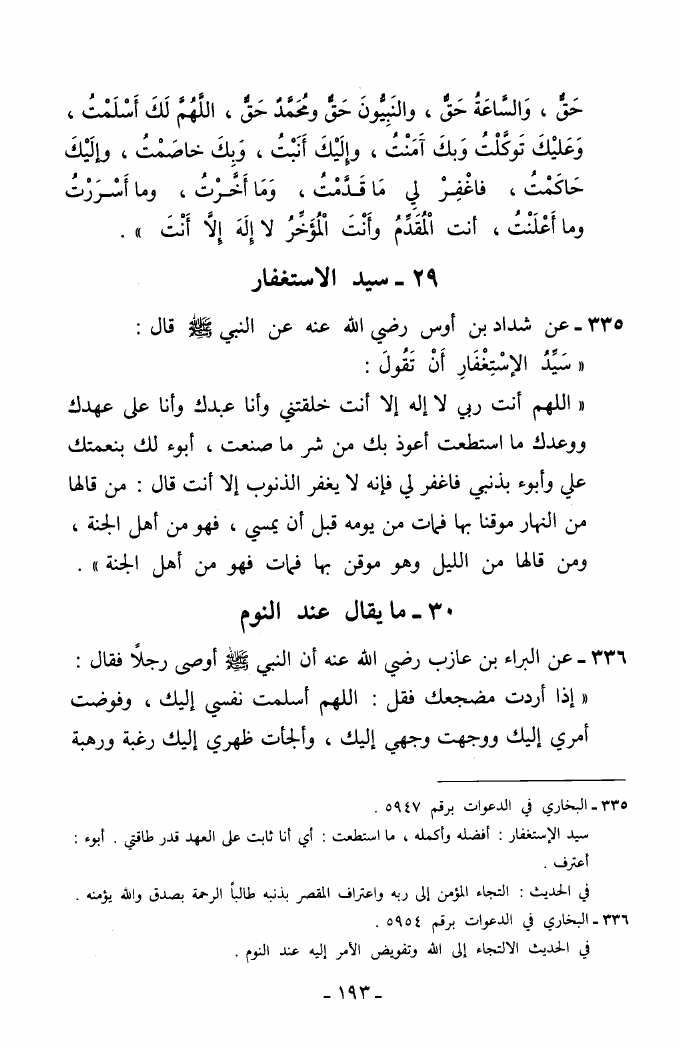 حَقٌّ ، وَالسَّاعَةُ حَقٌّ ، والنَبِيُّونَ حَقٌّ ومُحَمَّدٌ حَقٌّ ، اللَّهُمَّ لَكَ أَسْلَمْتُ ،
وَعَليْكَ تَوكَّلْتُ وَبِكَ آمَنْتُ ، وإِلَيْكَ أَنَبْتُ ، وَبِكَ خاصَمْتُ ، وإِلَيْكَ
حَاكَمْتُ ، فاغْفِرْ لِي مَا قَدَّمْتُ ، وَمَا أَخَّرْتُ ، وما أَسْرَرْتُ
وما أَعْلَنْتُ ، أنت الْمُقَدِّمُ وأَنْتَ الْمُؤَخِّرُ لا إِلَهَ إِلَّا أَنْتَ » .
٢٩ ـ سيد الاستغفار
٣٣٥ ـ عن شداد بن أوس رضي الله عنه عن النبي ﷺ قال :
« سَيِّدُ الإِسْتِغْفَارِ أَنْ تَقُولَ :
« اللهم أنت ربي لا إله إلا أنت خلقتني وأنا عبدك وأنا على عهدك
ووعدك ما استطعت أعوذ بك من شر ما صنعت ، أبوء لك بنعمتك
علي وأبوء بذنبي فاغفر لي فإنه لا يغفر الذنوب إلا أنت قال : من قالها
من النهار موقنا بها فمات من يومه قبل أن يمسي ، فهو من أهل الجنة ،
ومن قالها من الليل وهو موقن بها فمات فهو من أهل الجنة » .
٣٠ ـ ما يقال عند النوم
٣٣٦ ـ عن البراء بن عازب رضي الله عنه أن النبي ﷺ أوصى رجلاً فقال :
« إذا أردت مضجعك فقل : اللهم أسلمت نفسي إليك ، وفوضت
أمري إليك ووجهت وجهي إليك ، وألجأت ظهري إليك رغبة ورهبة
٣٣٥ ـ البخاري في الدعوات برقم ٥٩٤٧ .
سيد الإستغفار : أفضله وأكمله ، ما استطعت : أي أنا ثابت على العهد قدر طاقتي . أبوء :
أعترف .
في الحديث : التجاء المؤمن إلى ربه واعتراف المقصر بذنبه طالباً الرحمة بصدق والله يؤمنه .
٣٣٦ ـ البخاري في الدعوات برقم ٥٩٥٤ .
في الحديث الالتجاء إلى الله وتفويض الأمر إليه عند النوم .
ـ ١٩٣ ـ